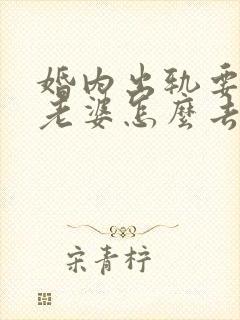 婚内出轨要
老婆怎麼去
宋青柠